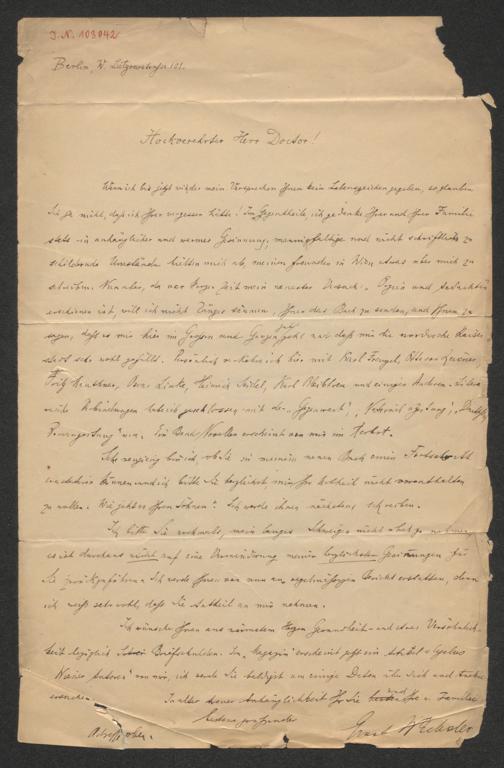 J. N. 108042
Berlin, W. Lützowstrasse 101.
Hochverehrter Herr Doctor!
Wenn ich bis jetzt wider mein Versprechen Ihnen kein Lebenszeichen gegeben, so glauben
Sie ja nicht, daß ich Ihrer vergessen hätte! Im Gegentheile, ich gedenke Ihrer und Ihrer Familie
stets in anhänglicher und warmer Gesinnung, mannigfaltige und nicht schriftlich zu
schildernde Umstände hielten mich ab, meinen Freunden in Wien etwas über mich zu
schreiben. Nunmehr, da vor kurzer Zeit mein neuestes Buch
erschienen ist, will ich nicht länger säumen, Ihnen das Buch zu senden, und Ihnen zu
sagen, daß es mir hier im Grossen und Ganzen gut geht und daß mir die nordische Kaiser-
stadt sehr wohl gefällt. Persönlich verkehre ich hier mit Karl Frenzel,
Fritz Mauthner, Oscar Linke, Heinrich Seidel, Karl Bleibtreu und einigen Anderen.
Verbindungen habe ich geschlossen mit der „Gegenwart",
Ein Band Novellen erscheint von mir im Herbst.
Sehr neugierig bin ich, ob Sie in meinem neuen Buch einen Fortschritt
und ich bitte Sie herzlichst mir Ihr Urtheil nicht vorenthalten
zu wollen. Wie geht es Ihren Söhnen? Ich werde ihnen nächstens schreiben.
Ich bitte Sie nochmals, mein langes Schweigen nicht übel zu nehmen,
es ist durchaus nicht auf eine Verminderung meiner herzlichsten Gesinnungen für
Sie zurückzuführen. Ich werde Ihnen von nun an regelmäßigen Bericht erstatten, denn
ich weiß sehr wohl, daß Sie Antheil an mir nehmen.
Ich wünsche Ihnen aus wärmstem Herzen Gesundheit und etwas Versöhnlich-
keit bezüglich Briefschulden. Im „Magazin" erscheint jetzt ein Artikel-Cyclus
„Wiener Autoren" von mir, ich werde Sie baldigst um einige Daten über Sich und
ersuchen.
In alter treuer Anhänglichkeit für Sie und Ihre Familie
bestens grüssender
Adresse oben.
Ernst Wechsler